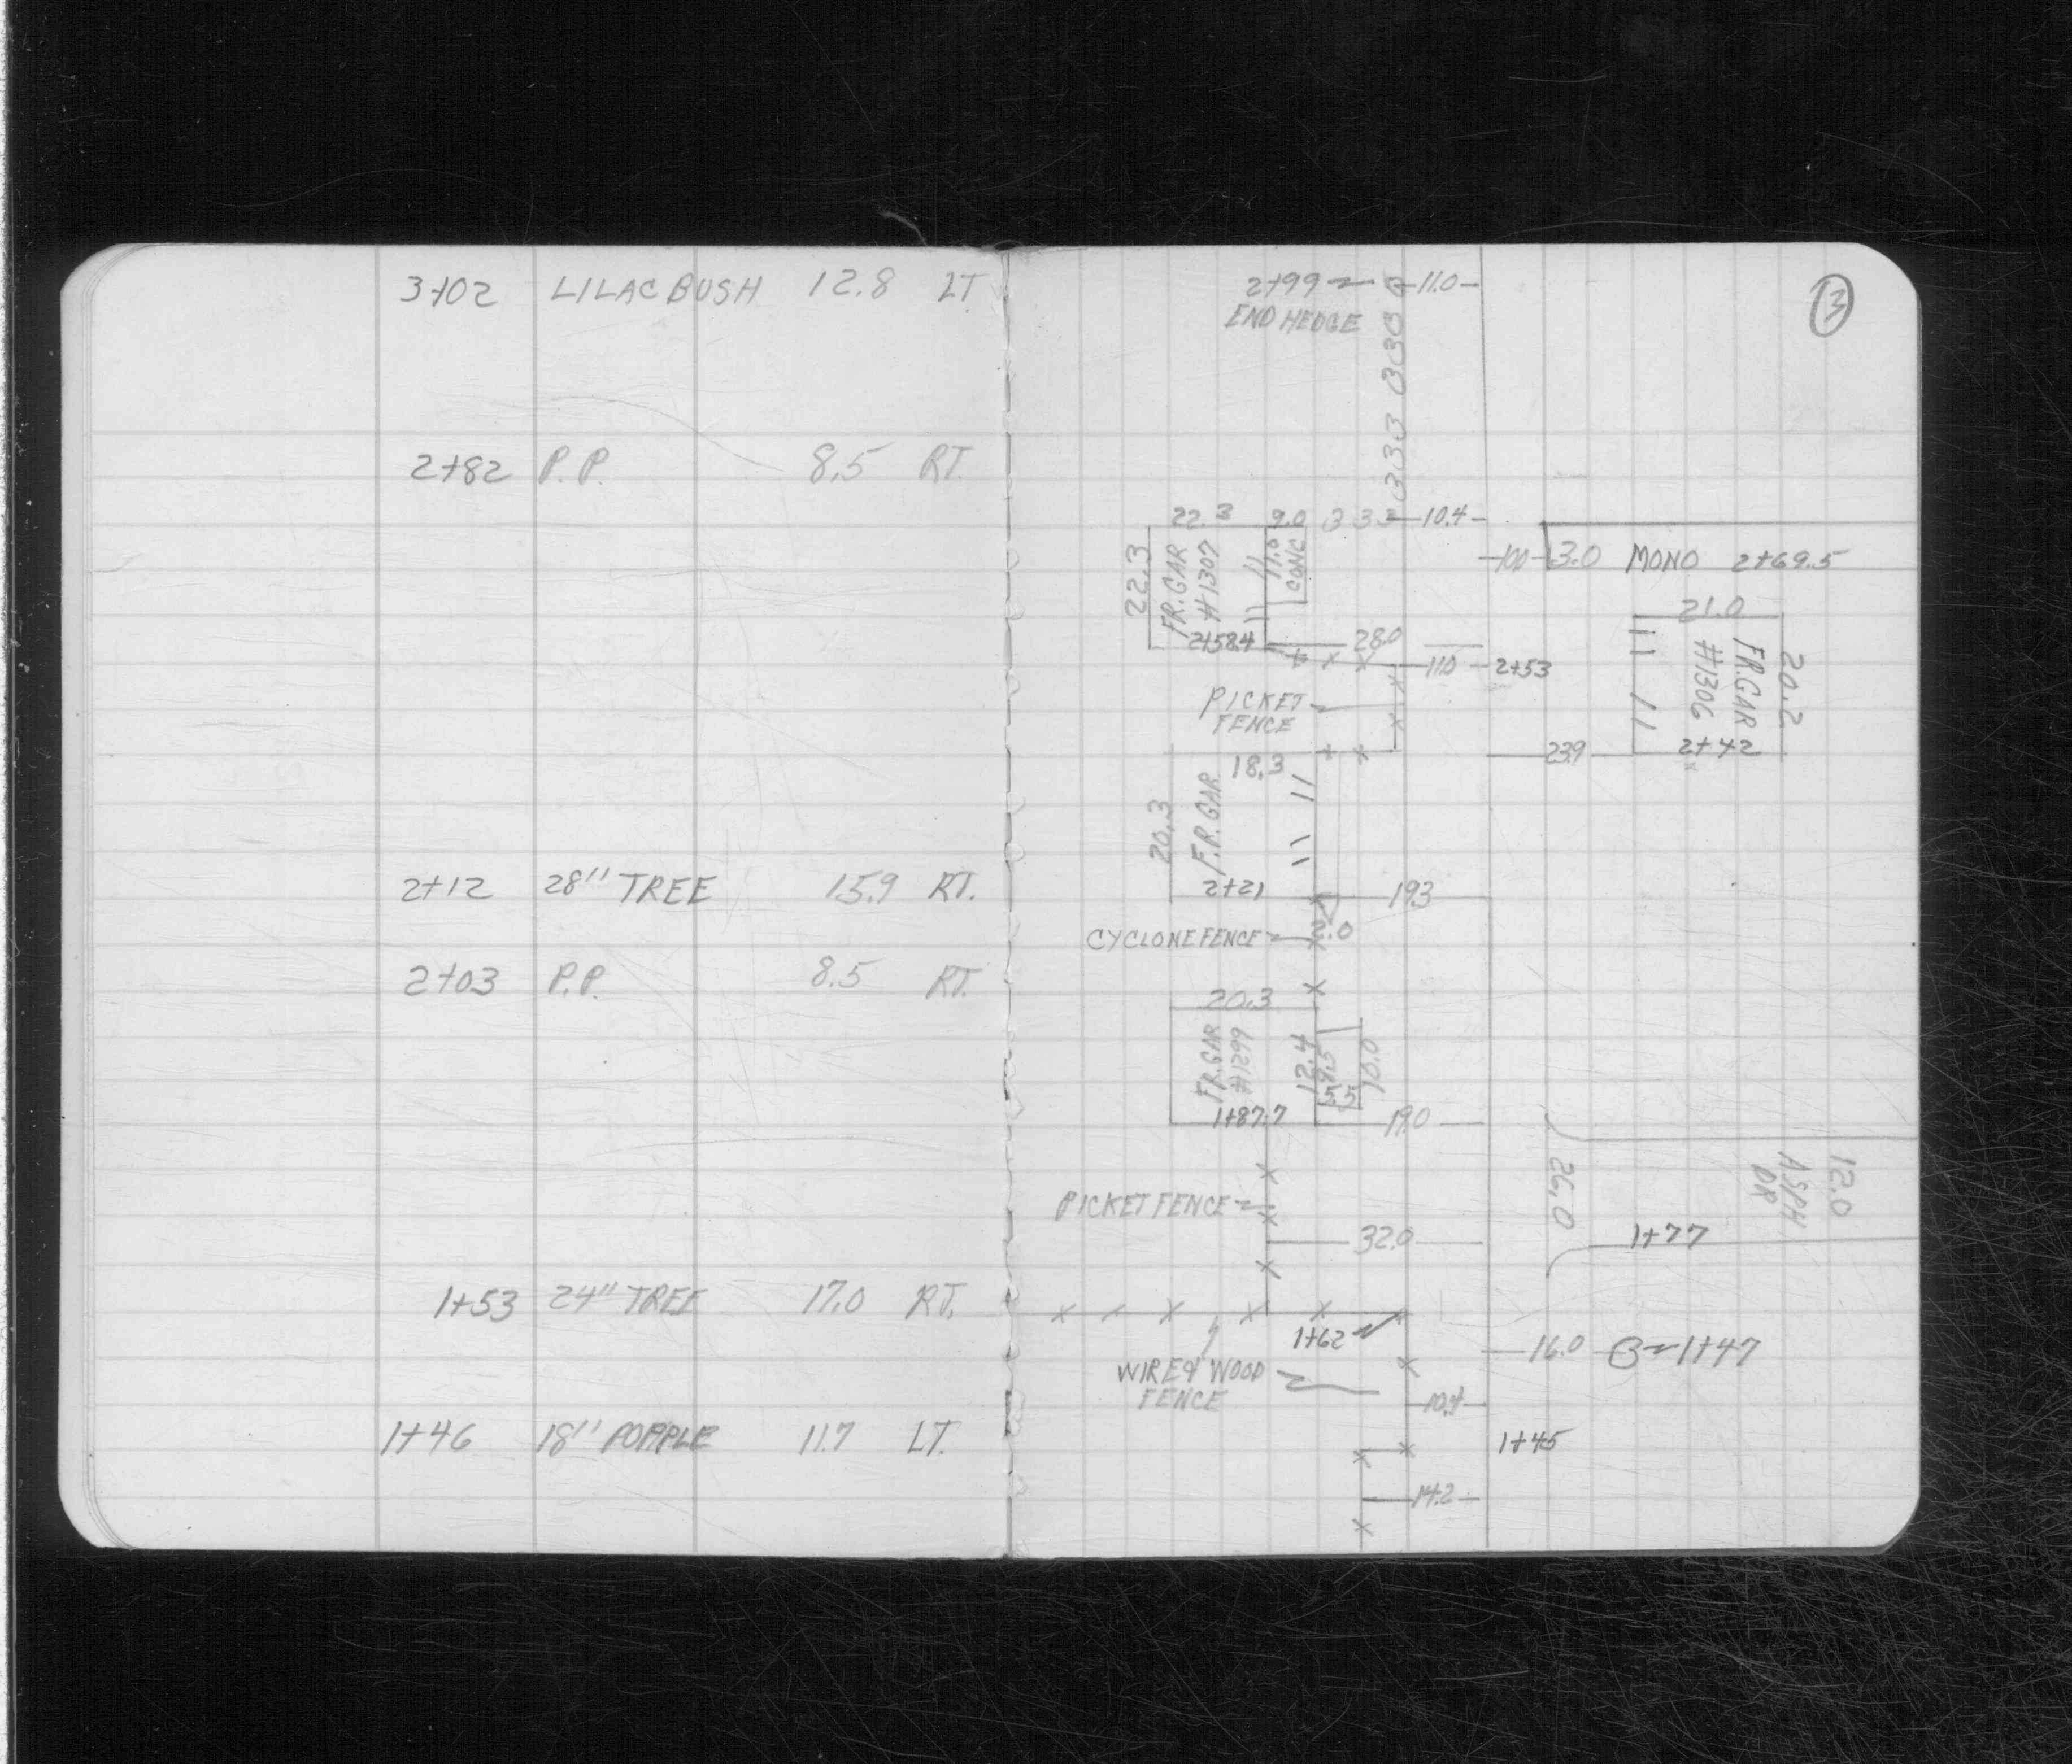 3+02 LILAC BUSH 12.8 LT
2+82 P.P. 8.5 RT.
2+12 28" TREE 15.9 RT.
2+03 P.P. 8.5 RT.
1+53 24" TREE 17.0 RT.
1+46 18" POPPLE 11.7 LT.
3
2+99 11.0
END HEDGE
22.3 9.0 10.4
22.3
FR. GAR
#1307
11.0
CONC
3.0 MONO 2+69.5
2+58.4 28.0
11.0 2+53
21.0
20.2
FR.GAR
#1306
2+42
23.9
PICKET
FENCE
18.3
20.3
FR. GAR.
2+21 19.3
2.0
CYCLONE FENCE
20.3
FR.GAR
#1299
12.4
9.5
5.5
10.0
1+87.7 19.0
12.0
ASPH
DR
26.0
1+77
PICKET FENCE
32.0
1+62
16.0 1+47
WIRE & WOOD
FENCE
1+45
14.2